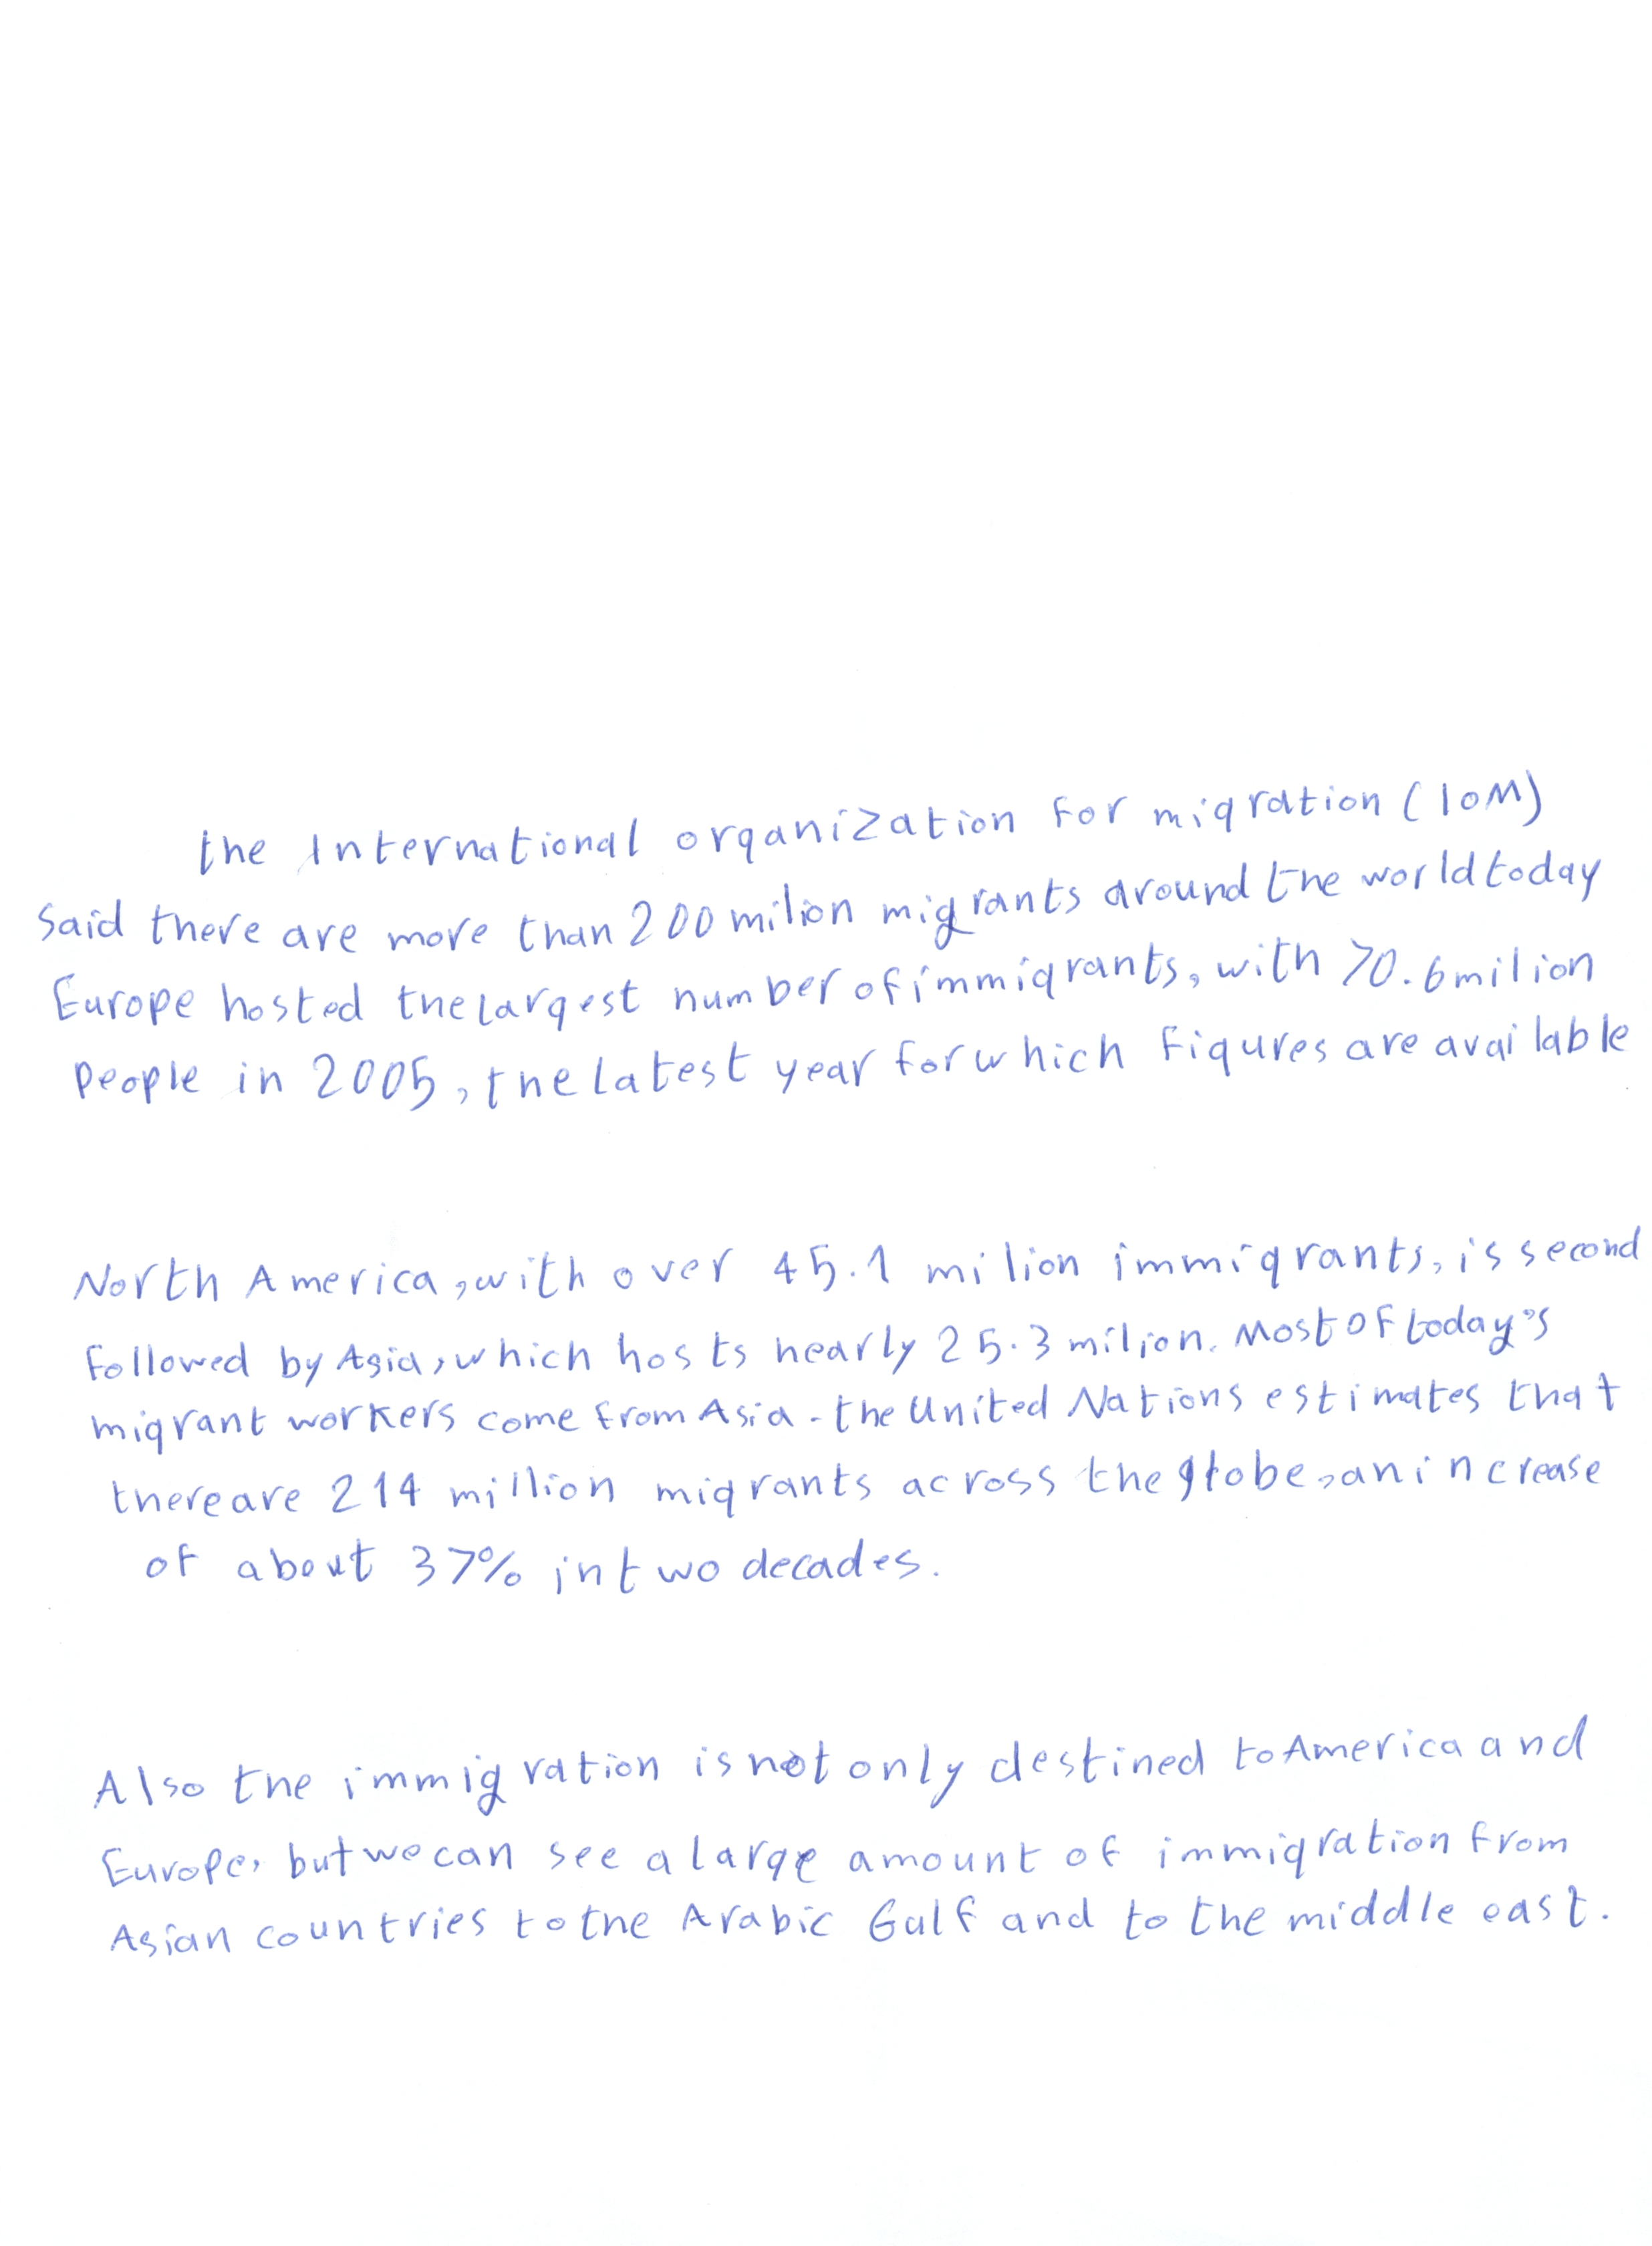 the International organization for migration (IOM)
said there are more than 200 milion migrants around the world today
Europe hosted the largest number of immigrants, with 70.6 milion
people in 2005, the latest year for which figures are available
North America, with over 45.1 milion immigrants, is second
followed by Asia, which hosts nearly 25.3 milion. Most of today's
migrant workers come from Asia - the United Nations estimates that
there are 214 million migrants across the globe, an increase
of about 37% in two decades.
Also the immigration is not only destined to America and
Europe, but we can see a large amount of immigration from
Asian countries to the Arabic Gulf and to the middle east.